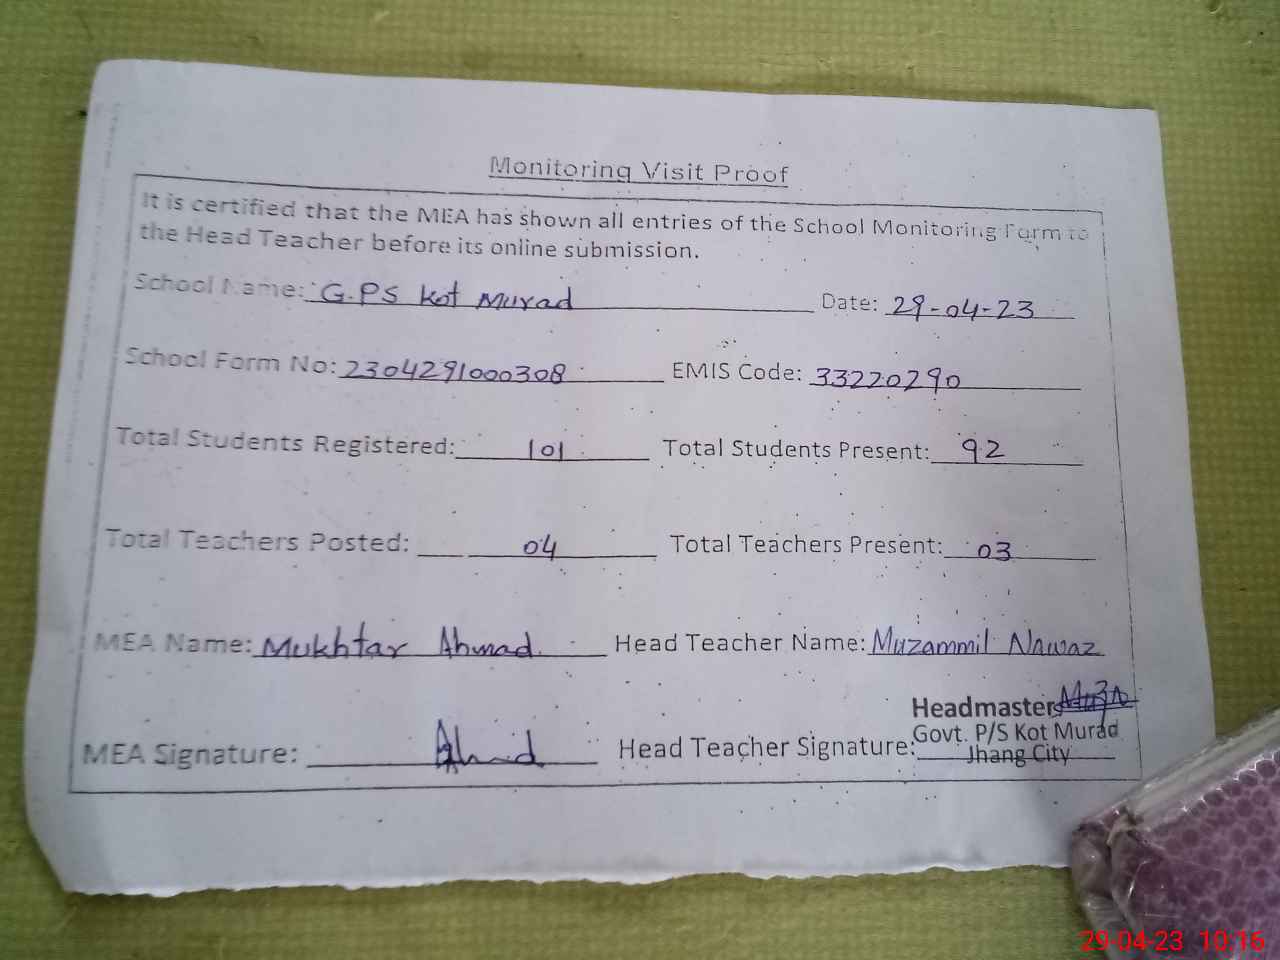 Monitoring Visit Proof
It is certified that the MEA has shown all entries of the School Monitoring Form to
the Head Teacher before its online submission.
School Name: G.PS Kot Murad Date: 29-04-23
School Form No: 2304291000308 EMIS Code: 33220290
Total Students Registered: 101 Total Students Present: 92
Total Teachers Posted: 04 Total Teachers Present: 03
MEA Name: Mukhtar Ahmad. Head Teacher Name: Muzammil Nawaz
Headmaster
Govt. P/S Kot Murad
MEA Signature: Ahmad Head Teacher Signature:
Jhang City
29-04-23 10:16